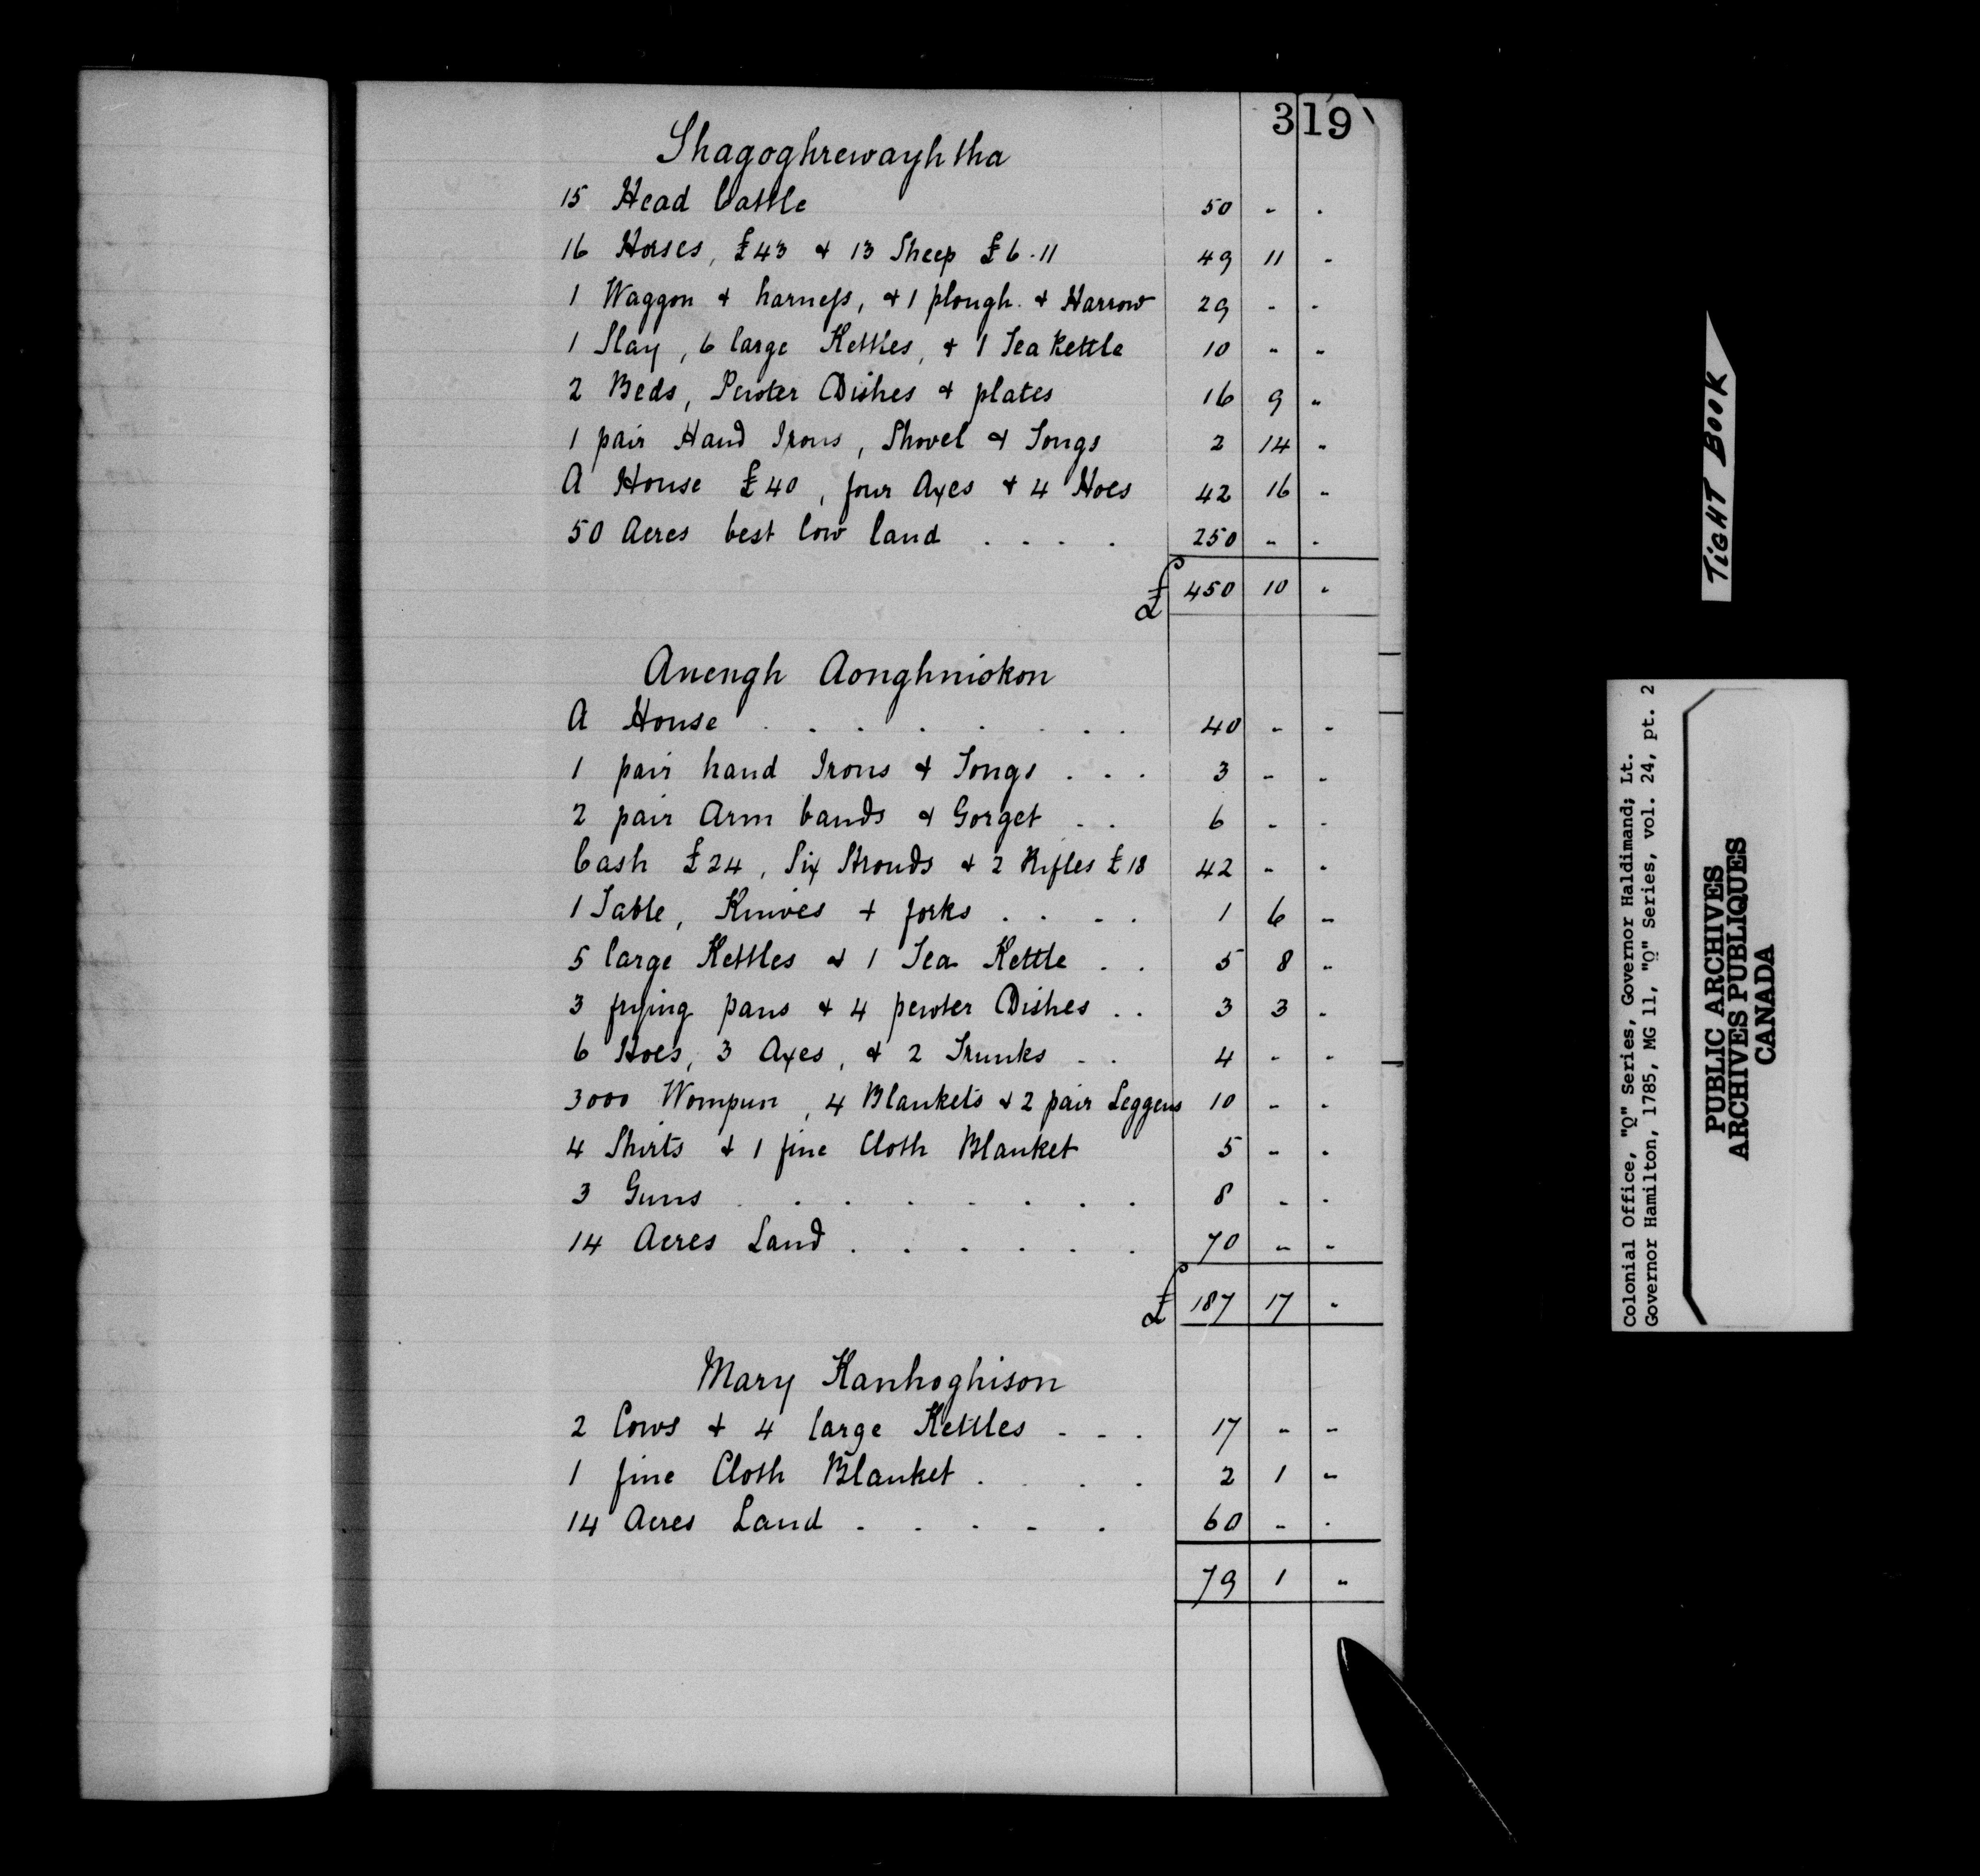 319
Shagoghrewayhtha
15 Head Cattle 50 - .
16 Horses, £43 & 13 Sheep £6.11 49 11 -
1 Waggon & harness, & 1 plough. & Harrow 29 - -
1 Slay, 6 large Kettles, & 1 Tea Kettle 10 - -
2 Beds, Pewter Dishes & plates 16 9 -
1 pair Hand Irons, Shovel & Tongs 2 14 -
A House £40, four Axes & 4 Hoes 42 16 -
50 Acres best low land . . . . 250 - .
£ 450 10 .
Anengh Aonghniokon
A House . . . . . . . 40 - -
1 pair hand Irons & Tongs . . . 3 - -
2 pair Arm bands & Gorget . . 6 - -
Cash £24, Six Strouds & 2 Rifles £18 42 - -
1 Table, Knives & forks . . . . 1 6 -
5 large Kettles & 1 Tea Kettle . . 5 8 -
3 frying pans & 4 pewter Dishes . . 3 3 -
6 Hoes, 3 Axes, & 2 Trunks . . 4 - -
3000 Wompun, 4 Blankets & 2 pair Leggens 10 - -
4 Shirts & 1 fine Cloth Blanket 5 - -
3 Guns . . . . . . . . 8 - -
14 Acres Land . . . . . . 70 - -
£ 187 17 -
Mary Kanhoghison
2 Cows & 4 large Kettles - - - 17 - -
1 fine Cloth Blanket . . . . 2 1 -
14 Acres Land . . . . . 60 - -
79 1 -
TIGHT BOOK
Colonial Office, "Q" Series, Governor Haldimand; Lt.
Governor Hamilton, 1785, MG 11, "Q" Series, vol. 24, pt. 2
PUBLIC ARCHIVES
ARCHIVES PUBLIQUES
CANADA